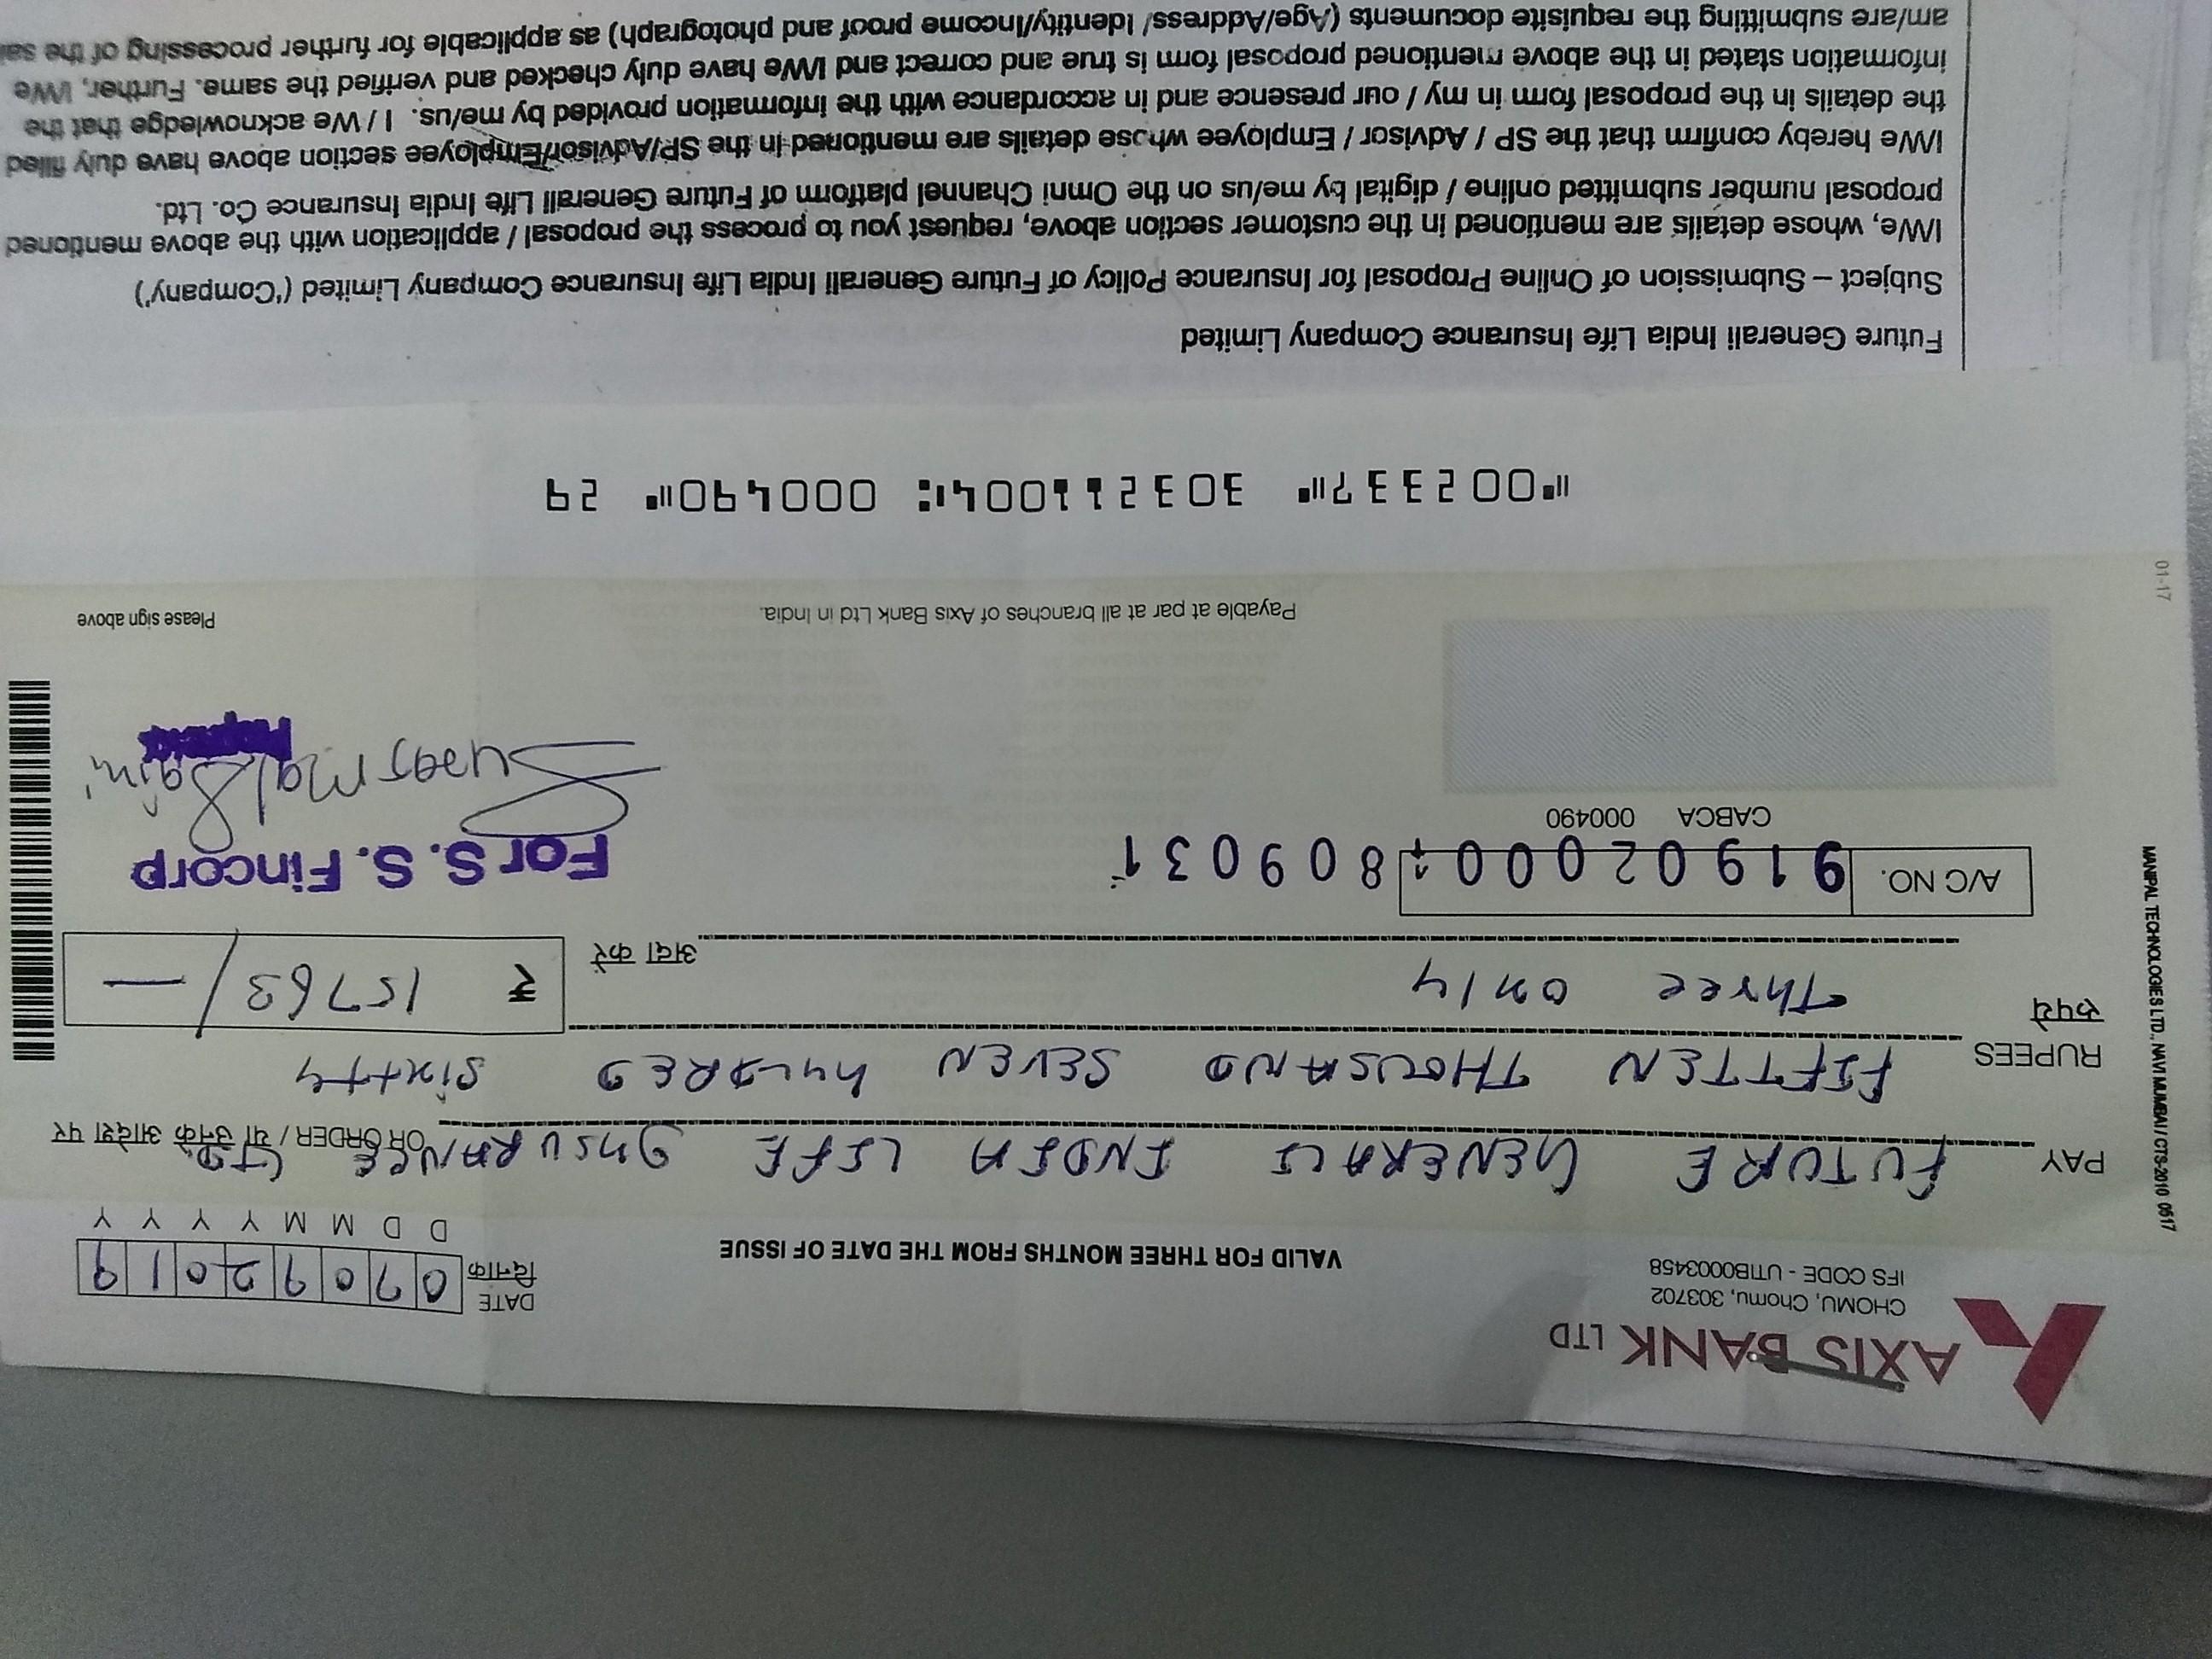 AXIS BANK LTD
CHOMU, Chomu, 303702
IFS CODE - UTIB0003458
VALID FOR THREE MONTHS FROM THE DATE OF ISSUE
DATE
दिनांक
07092019
D D M M Y Y Y Y
PAY FUTURE GENERALI INDIA LIFE INSURANCE LTD. OR ORDER / या उनके आदेश पर
RUPEES FIFTTEN THOUSAND SEVEN hundRED sixtty
रुपये Three only अदा करें
₹ 15763/—
A/C NO. 919020001809031
CABCA 000490
For S. S. Fincorp
Payable at par at all branches of Axis Bank Ltd in India.
Please sign above
MANIPAL TECHNOLOGIES LTD., NAVI MUMBAI / CTS-2010 0517
01-17
⑈002337⑈ 303211004⑆ 000490⑈ 29
Future Generali India Life Insurance Company Limited
Subject – Submission of Online Proposal for Insurance Policy of Future Generali India Life Insurance Company Limited ('Company')
I/We, whose details are mentioned in the customer section above, request you to process the proposal / application with the above mentioned
proposal number submitted online / digital by me/us on the Omni Channel platform of Future Generali Life India Insurance Co. Ltd.
I/We hereby confirm that the SP / Advisor / Employee whose details are mentioned in the SP/Advisor/Employee section above have duly filled
the details in the proposal form in my / our presence and in accordance with the information provided by me/us. I / We acknowledge that the
information stated in the above mentioned proposal form is true and correct and I/We have duly checked and verified the same. Further, I/We
am/are submitting the requisite documents (Age/Address/ Identity/Income proof and photograph) as applicable for further processing of the